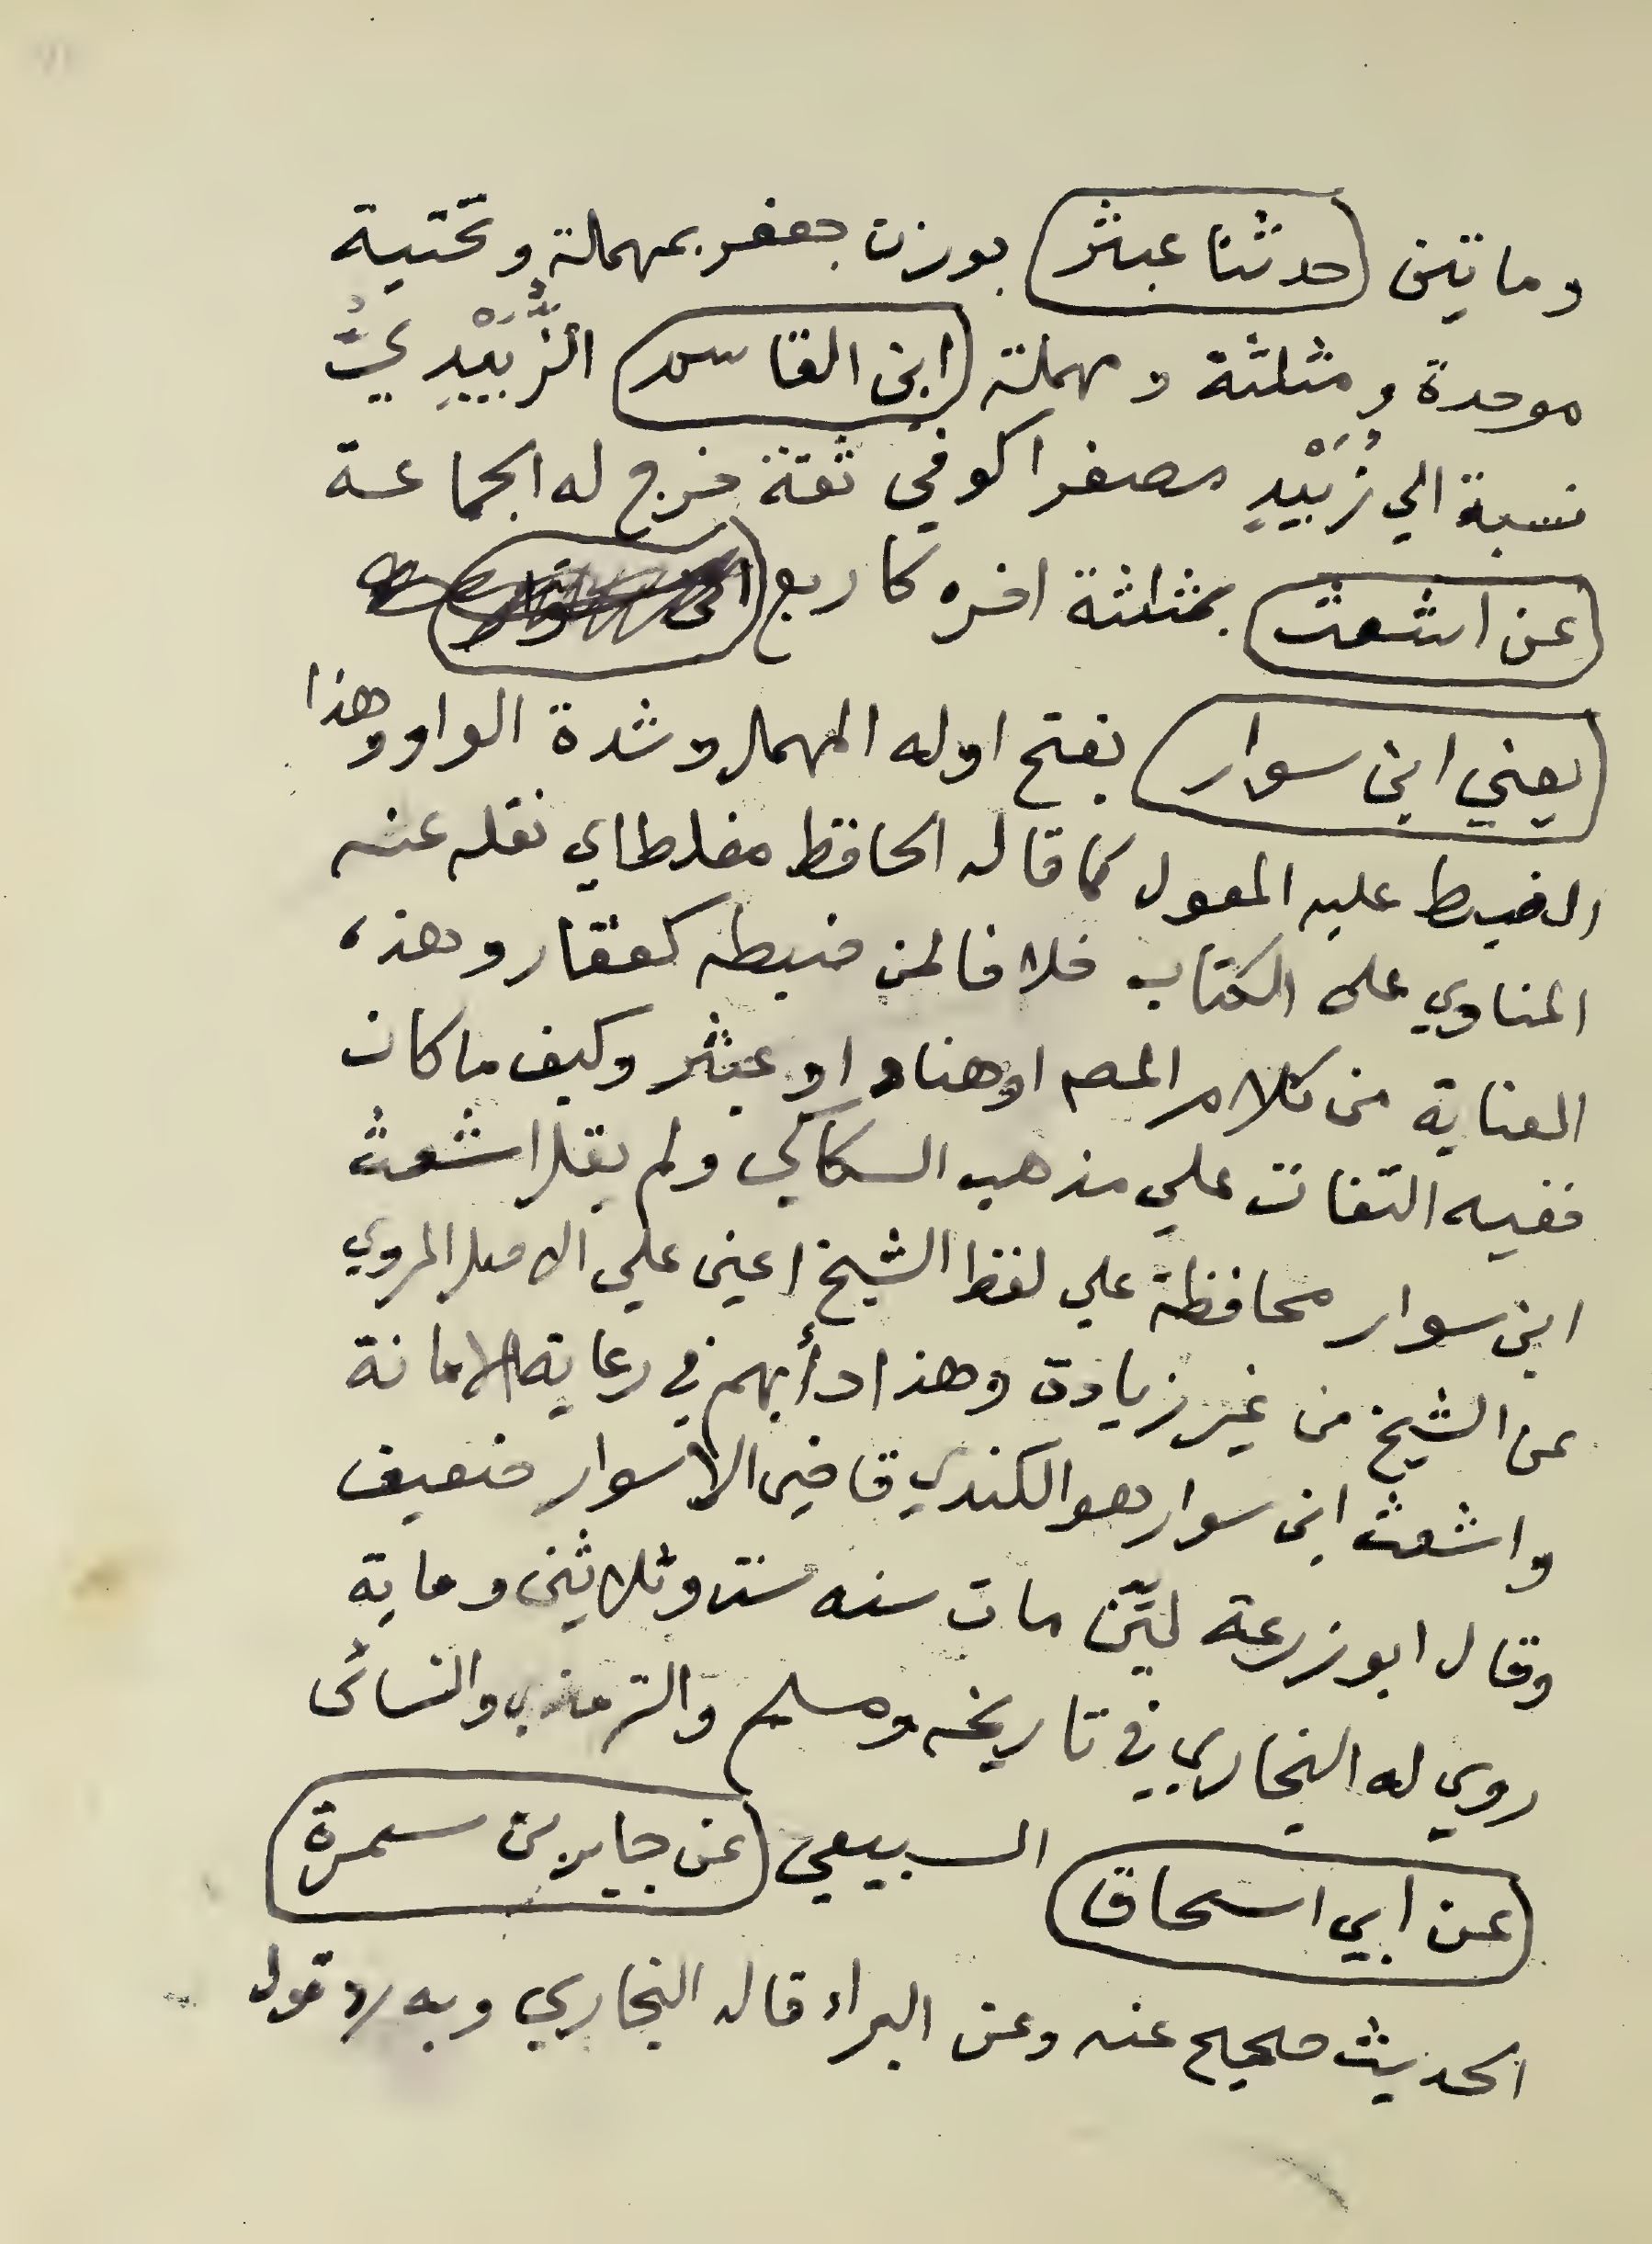 ومايتين حدثنا عبثر بوزن جعفر بمهملة وتحتية
موحدة ومثلثة ومهملة ابن القاسم الزُّبَيْدِيُّ
نسبة الي زُبَيْدٍ مصغرا كوفي ثقة خرج له الجماعة
عن اشعث بمثلثة اخره كاربع
يعني ابن سوار بفتح اوله المهمل وشدة الواو وهذا
الضبط عليه المعول كما قاله الحافظ مغلطاي نقله عنه
المناوي على الكتاب خلافا لمن ضبطه كغفار وهذه
العناية من كلام المصـ او هناد او عبثر وكيف ما كان
ففيه التفات علي مذهب السكاكي ولم يقل اشعث
ابن سوار محافظة علي لفظ الشيخ اعني علي الاصل المروي
عن الشيخ من غير زيادة وهذا دأبهم في رعاية الامانة
واشعث ابن سوار هو الكندي قاضي الاسوار ضعيف
وقال ابو زرعة ليّن مات سنه ست وثلاثين وماية
روي له البخاري في تاريخه ومسلم والترمذي والنسائى
عن ابي اسحاق السبيعي عن جابر بن سمرة
الحديث صحيح عنه وعن البراء قاله البخاري وبه رد قول